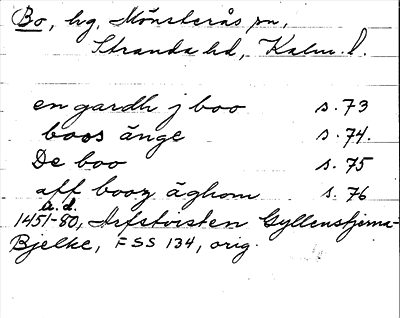 Bo, hg, Mönsterås sn,
Stranda hd, Kalm. l.
en gardh j boo s. 73
boos änge s. 74.
De boo s. 75
aff booz äghom s. 76
a.d.
1451-80, Arfstvisten Gyllenstjerna-
Bjelke, FSS 134, orig.